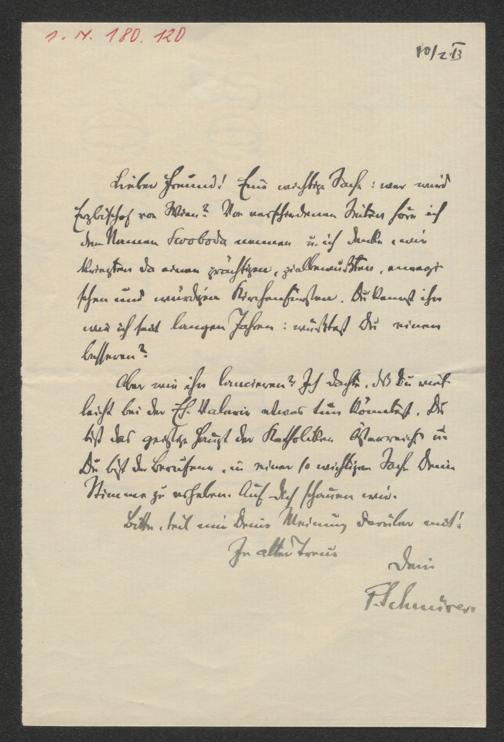 I. N. 180.120
10/2 13
Lieber Freund! Eine wichtige Sache: wer wird
Erzbischof von Wien? Von verschiedenen Seiten höre ich
den Namen Swoboda nennen u. ich denke, wir
kriegten da einen prächtigen, zielbewußten, energi
schen und würdigen Kirchenfürsten. Du kennst ihn
wie ich seit langen Jahren: wüßtest Du einen
besseren?
Aber wie ihn lancieren? Ich dachte, daß Du viel-
leicht bei der Eh. Valerie etwas tun könntest. Du
bist das geistige Haupt der Katholiken Österreichs u.
Du bist der Berufene, in einer so wichtigen Sache Deine
Stimme zu erheben. Auf Dich schauen wir.
Bitte, teil mir Deine Meinung darüber mit!
In alter Treue
Dein
F. Schnürer